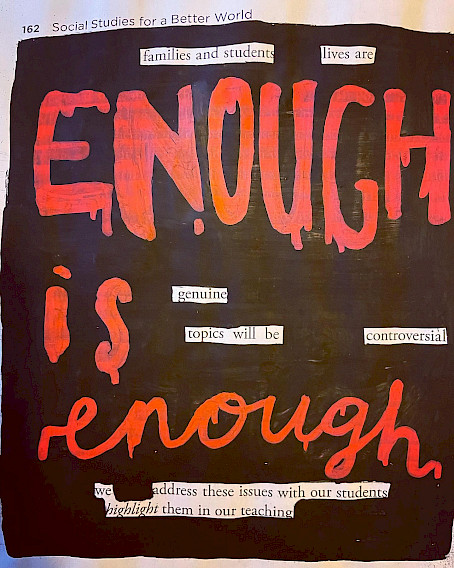 162 Social Studies for a Better World
families and students lives are
ENOUGH
is
genuine
topics will be controversial
enough
we address these issues with our students
highlight them in our teaching